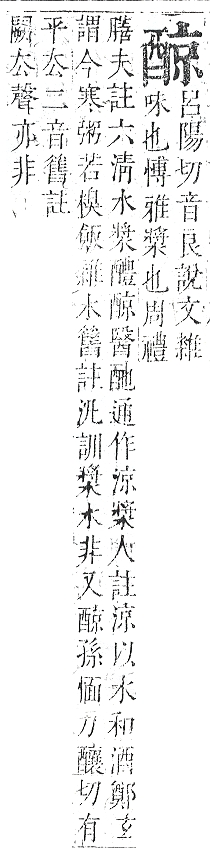 醇
呂陽切音良說文雜
味也博雅漿也周禮
膳夫註六淸水漿醴䣼醫酏通作涼漿人註涼以水和酒鄭玄
謂今寒粥若糗飯雜水舊註汎訓漿水非又䣼孫愐力釀切有
平厺二音舊註
闕厺聲亦非